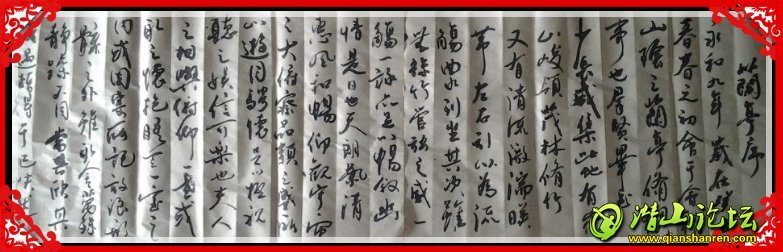 蘭亭序
永和九年歲在
暮春之初會于會
山陰之蘭亭脩
事也羣賢畢至
少長咸集此地有
山峻領茂林脩竹
又有清流激湍暎
帶左右引以為流
觴曲水列坐其次雖
無絲竹管弦之盛一
觴一詠亦足以暢敘幽
情是日也天朗氣清
惠風和暢仰觀宇宙
之大俯察品類之盛所
以遊目騁懷足以極視
聽之娛信可樂也夫人
之相與俯仰一世或
取之懷抱晤言一室之
內或因寄所託放浪形
骸之外雖取舍萬殊
靜躁不同當其欣其
所遇暫得于己快然
潜山论坛
www.qianshanren.com